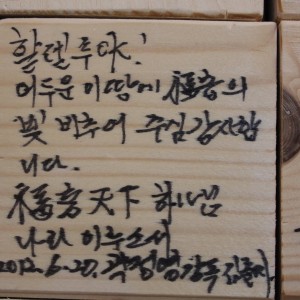 할렐루야!
어두운 이 땅에 福音의
빛 비추어 주심 감사합
니다.
福音天下 하나님
나라 이루소서
2012.6.20. 곽정영